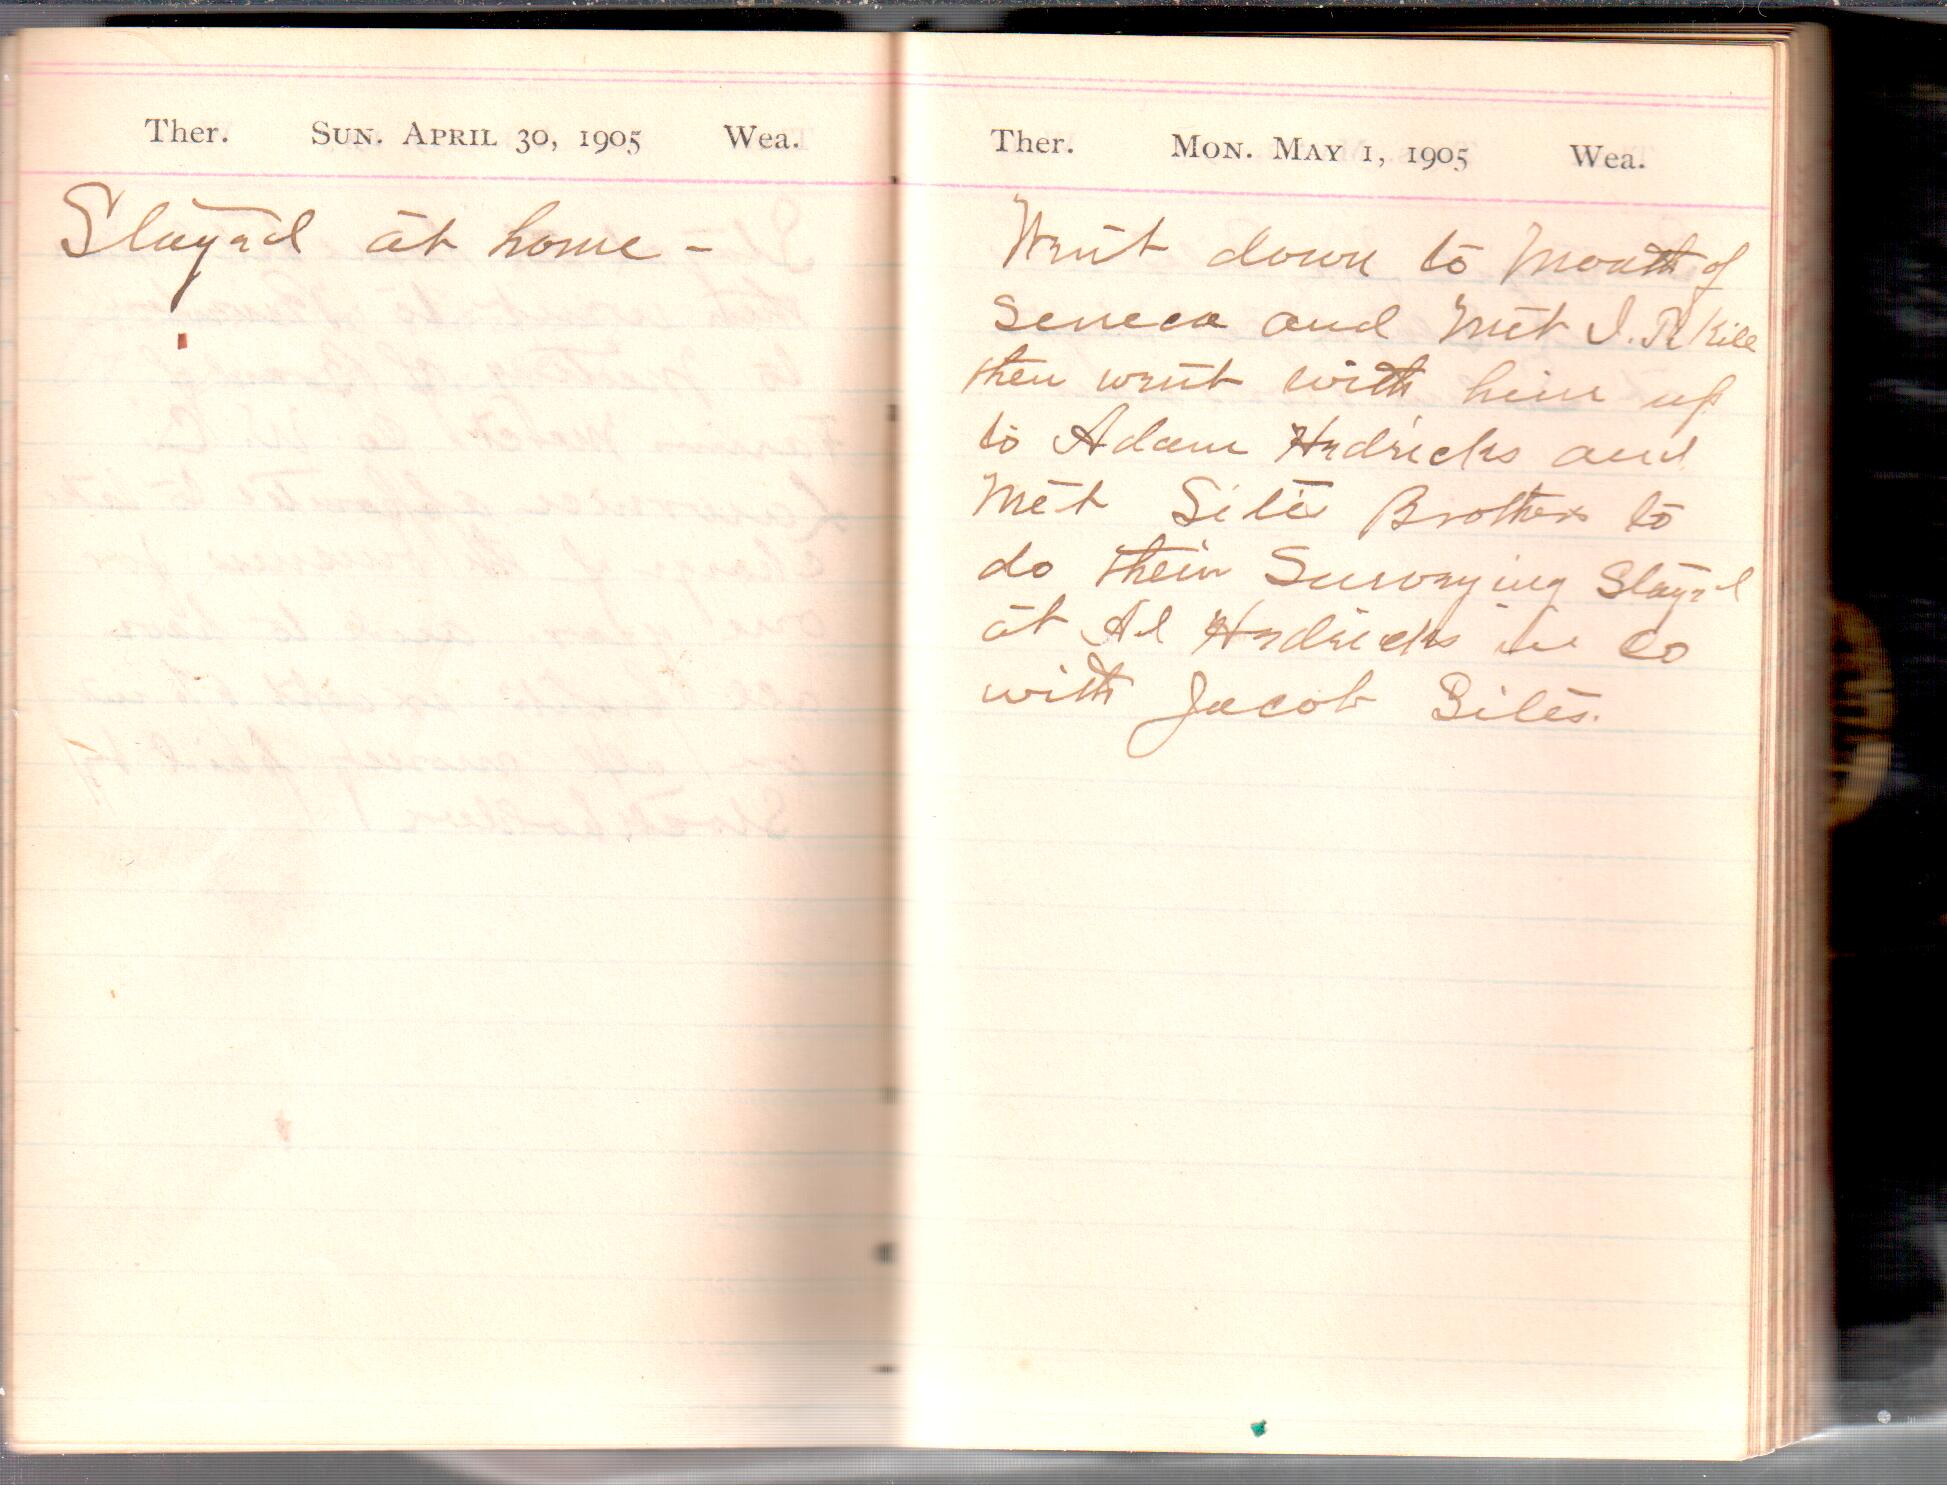 Ther. Sun. April 30, 1905 Wea.
Stayed at home -
Ther. Mon. May 1, 1905 Wea.
Went down to Mouth of
Seneca and Met I. R. Kile
then went with him up
to Adam Hedricks and
Met Sites Brothers to
do their Surveying Stayed
at Ad Hedricks in Co
with Jacob Sites.